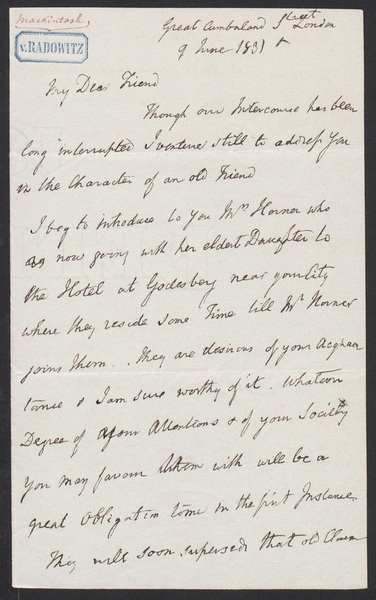 Mackintosh
v. RADOWITZ
Great Cumberland Street London
9 June 1831
My Dear Friend
Though our Intercourse has been
long interrupted I venture still to address You
in the Character of an old Friend
I beg to introduce to you Mrs Horner who
is now going with her eldest Daughter to
the Hotel at Godesberg near your City
where they reside some Time till Mr Horner
joins them. They are desirous of your Acquain
tance & I am sure worthy of it. Whatever
Degree of Your Attentions & of your Society
You may favour them with will be a
great Obligation to me in the first Instance.
They will soon supersede that old Claim